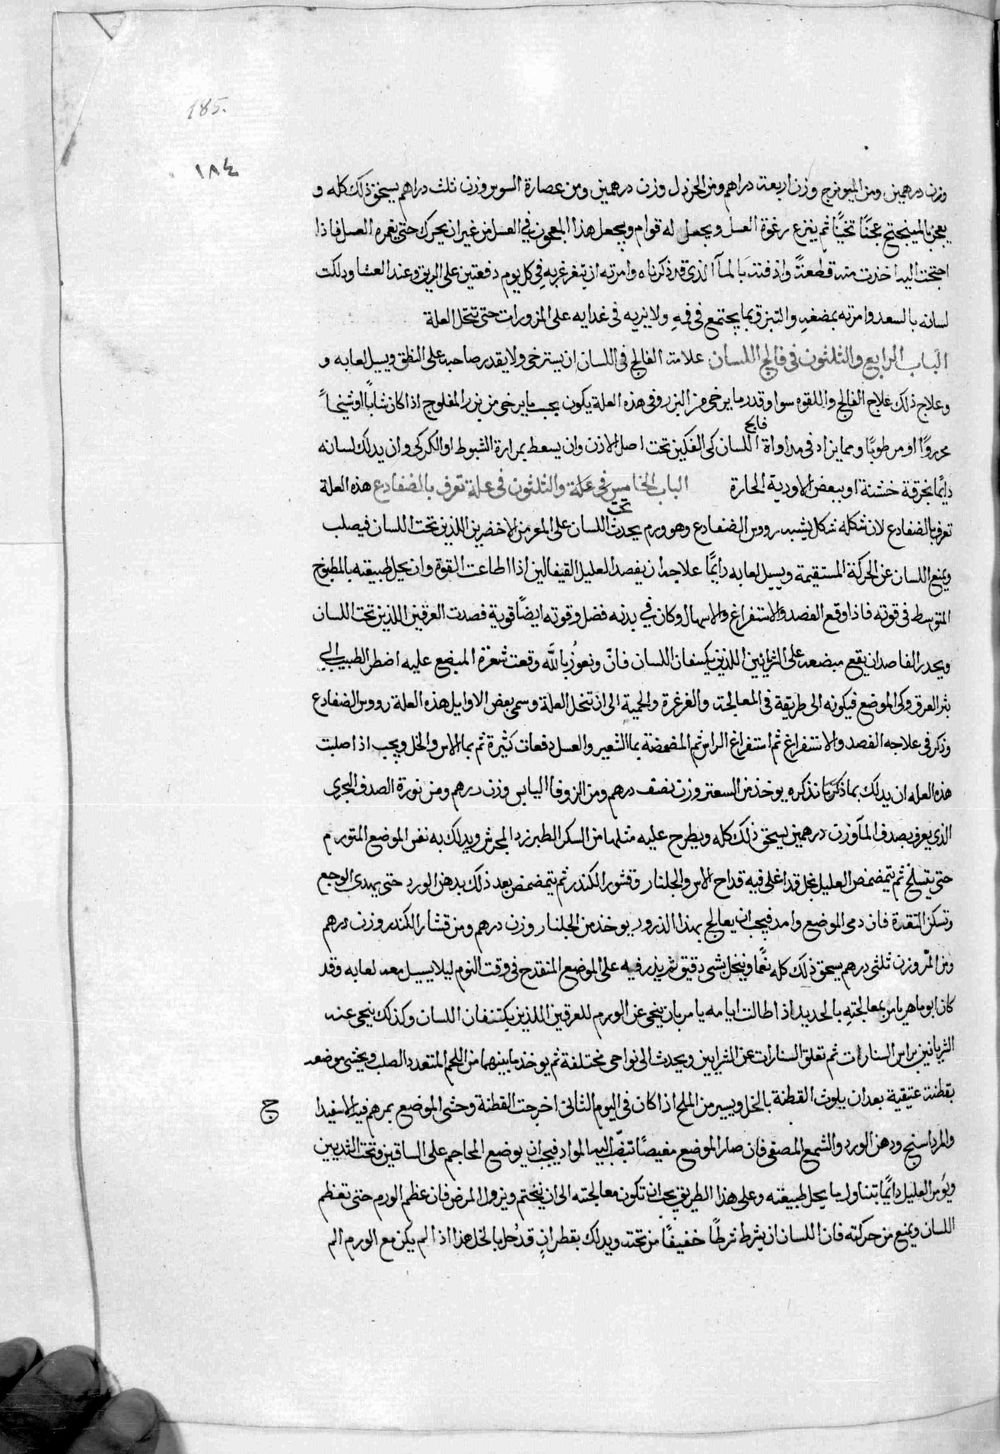 185.
١٨٤
وزن درهمين ومن الميويزج وزن اربعة دراهم ومن الخردل وزن درهمين ومن عصارة السوس وزن ثلث دراهم يسحق ذلك كله و
يعجن بالميبختج عجنًا ثخينًا ثم ينزع رغوة العسل ويجعل له قوام ويجعل هذا المعجون في العسل من غير ان يحرك حتى يغمره العسل فاذا
احتجت اليه اخذت منه قطعة واذفتها بالمآ الذي قد ذكرناه وامرته ان يتغرغر به في كل يوم دفعتين على الريق وعند العشا ودلكت
لسانه بالسعد وامرته بمضغه والتبزق بما يجتمع في فيه ولا يزيد في غدايه على المزورات حتى تنحل العلة
الباب الرابع والثلثون في فالج اللسان علامة الفالج في اللسان ان يسترخي ولا يقدر صاحبه على النطق ويسيل لعابه و
وعلاج ذلك علاج الفالج واللقوه سوا وقدر ما يرخي من البزر وفي هذه العلة يكون بحسب ما يرخي من بزر المفلوج اذا كان شابًا او شيخًا
محرورًا او مرطوبًا ومما يزاد في مداواة فالج اللسان كي الفكين تحت اصل الاذن وان يسعط بمرارة الشبوط او الكركي وان يدلك لسانه
دايمًا بخرقة خشنة او ببعض الادوية الحارة الباب الخامس والثلثون في علة تعرف بالضفادع هذه العلة
تعرف بالضفادع لان شكله شكل يشبه رووس الضفادع وهو ورم يحدث تحت اللسان على العرقين الاخضرين اللذين تحت اللسان فيصلب
ويمنع اللسان عن الحركة المستقيمة ويسيل لعابه دايمًا علاجه ان يفصد العليل القيفالين اذا اطاعت القوة وان يحل طبيعته بالمطبوخ
المتوسط في قوته فاذا وقع الفصد والاستفراغ والاسهال وكان في بدنه فضل وقوته ايضًا قوية فصدت العرقين اللذين تحت اللسان
ويحذر الفاصد ان يقع مبضعه على الشريانين اللذين يكنفان اللسان فان ونعوذ بالله وقعت شعرة المبضع عليه اضطر الطبيب الى
بتر العرق وكي الموضع فيكونه الى طريقة في المعالجة والغرغرة والحمية الى ان تنحل العلة وسمى بعض الاوايل هذه العلة رووس الضفادع
وذكر في علاجه الفصد والاستفراغ ثم استفراغ الراس ثم المضمضة بماالشعير والعسل دفعات كثيرة ثم بما الاس والخل ويجب اذا صلبت
هذه العله ان يدلك بما نذكره يوخذ من السعتر وزن نصف درهم ومن الزوفا اليابس وزن درهم ومن نورة الصدف البحري
الذي يعرف بصدف المآ وزن درهمين يسحق ذلك كله ويطرح عليه مثلها من السكر الطبرزد المجرش ويدلك به نفس الموضع المتورم
حتى يتسلخ ثم يتمضمض العليل بخل قد اغلي فيه قداح الاس والجلنار وقشور الكندر ثم يتمضمض بعد ذلك بدهن الورد حتى يهدى الوجع
وتسكن فان دمى الموضع وامد فيجب ان يعالج بهذا الذرور يوخذ من الجلنار وزن درهم ومن قشار الكندر وزن درهم
ومن المر وزن ثلثي درهم يسحق ذلك كله نعمًا وينخل بشي دقيق ثم يذر فيه على الموضع المنقدح في وقت النوم ليلا يسيل معه لعابه وقد
كان ابوماهر يامر بمعالجته بالحديد اذا طالت ايامه يامر بان ينحي عن الورم للعرقين اللذين يكتنفان اللسان وكذلك ينحي عنه
الشريانين براس السنارات ثم تعلق السنارات عن الشرايين ويحدث الى نواحي مختلفة ثم يوخذ ما بينهما من اللحم المتعدد الصلب ويحشى موضعه
بقطنة عتيقية بعد ان يلوث القطنة بالخل ويسير من الملح اذا كان في اليوم الثاني اخرجت القطنة وحشى الموضع بمرهم فيه الاسفيدا
ج
والمرداسنج ودهن الورد والشمع المصفى فان صار الموضع مغيضًا تنصب اليه المواد فيجب ان يوضع المحاجم على الساقين وتحت الثديين
ويومر العليل دايمًا بتناول ما يحل طبيعته وعلى هذا الطريق يجب ان تكون معالجته الى ان يختم ويزول المرض فان عظم الورم حتى تعظم
اللسان ويمنع من حركته فان اللسان ان يشرط شرطًا خفيفًا من تحته ويدلك بقطران قد حل بالخل هذا اذا لم يكن مع الورم الم